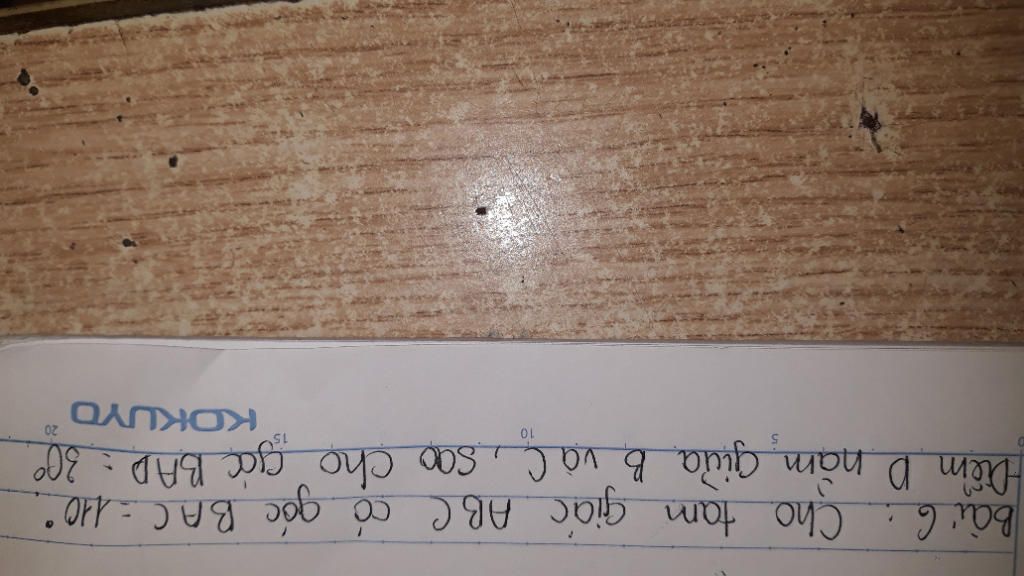 Bài 6: Cho tam giác ABC có góc BAC = 110°.
Điểm D nằm giữa B và C, sao cho góc BAD = 30°
0 5 10 15 20
KOKUYO